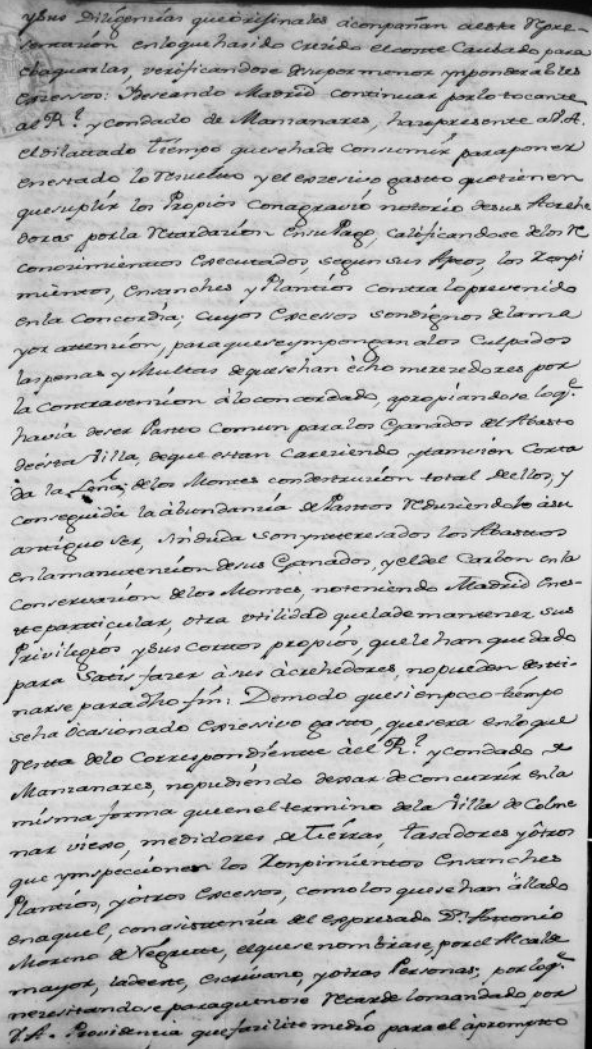 y sus Diligencias que originales acompañan a esta Repre-
sentacion en lo que ha sido crecido el coste Causado para
evaquarlas, verificandose de su por menor ynponderables
excessos: Deseando Madrid continuar por lo tocante
al R.l y condado de Manzanares, hace presente a V.A.
el dilattado tiempo que se ha de consumir para poner
en estado lo resuelto y el excesivo gasto que tienen
que suplir los Propios con agravio notorio de sus Acrehe
dores por la retardacion en su Pago, calificandose de los re
conocimientos executados, segun sus Autos, los Ronpi
mientos, ensanches y Plantios contra lo prevenido
en la concordia; cuyos excessos son dignos de la ma
yor attencion, para que se ympongan a los Culpados
las penas y Multas de que se han echo merezedores por
la contravencion à lo concordado, apropiandose loq.e
havia de ser Pasto Comun para los Ganados del Abasto
de esta Villa, de que estan careziendo, y tamvien Corta
da la Leña de los Montes con destrucion total de ellos, y
conseguida la abundancia de Pastos reduziendolo à su
antiguo ser, sin duda son ynteresados los Abastos
en la manutencion de sus Ganados, y el del Carbon en la
conservacion de los Montes, no teniendo Madrid en es-
te particular, otra utilidad que la de mantener sus
Privilegios y sus cortos propios, que le han quedado
para satisfazer à sus àcrehedores, no pueden desti-
narse para dho fin: De modo que si en poco tiempo
se ha ocasionado excessivo gasto, que sera en lo que
resta de lo Correspondiente àel R.l y condado de
Manzanares, no pudiendo dexar de concurrir en la
misma forma que en el termino de la Villa de Colme
nar viexo, medidores de tierras, tasadores y òtros
que ynspeccionen los Ronpimientos Ensanches
Plantios, y òtros excessos, como los que se han àllado
en aquel, con asistencia del expresado D.n Antonio
Moreno de Negrete, el que se nombrase, por el Alcalde
mayor, Escrivano, y otras Personas; por loq.e
nezesitandose para que no se retarde lo mandado por
V.A. Providencia que facilite medio para el àprompto